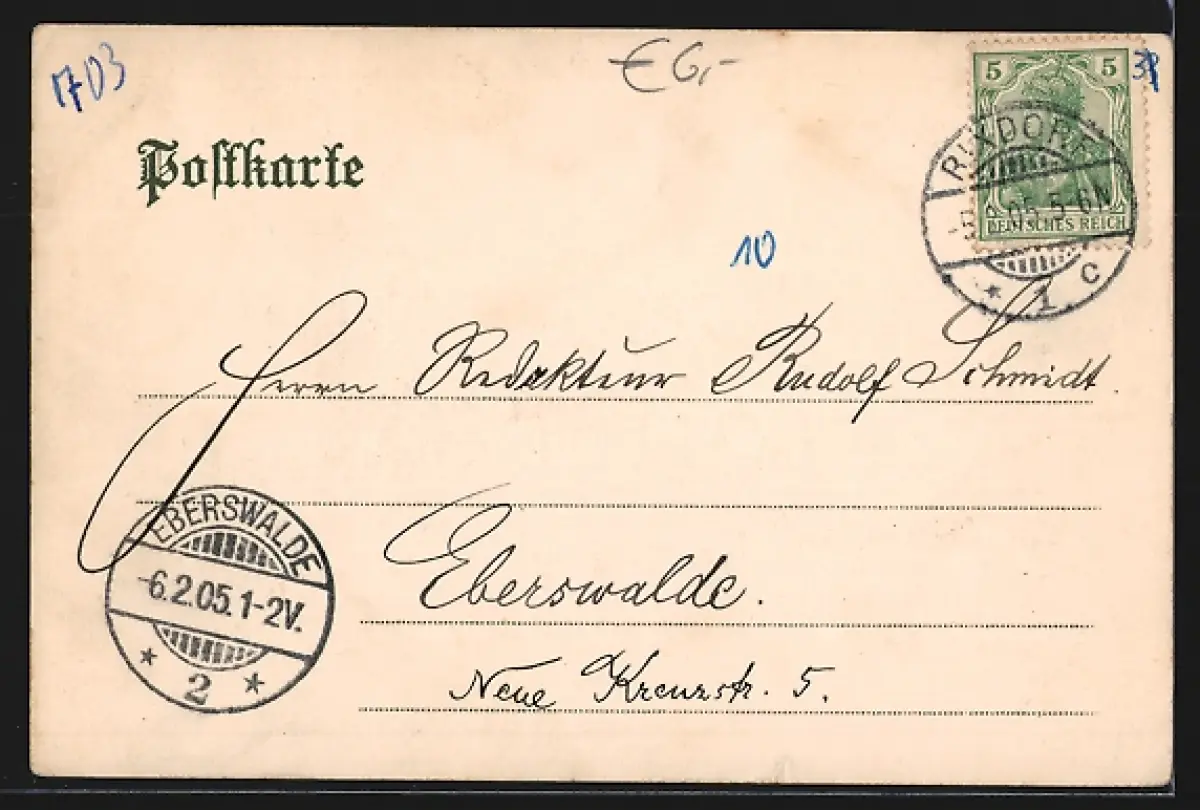 1703
€ 6,-
5 5
37
Postkarte
RIXDORF
-5.2.05.5-6N
DEUTSCHES REICH
* 1 c
10
Herrn Redakteur Rudolf Schmidt.
EBERSWALDE
-6.2.05.1-2V.
* 2 *
Eberswalde.
Neue Kreuzstr. 5.